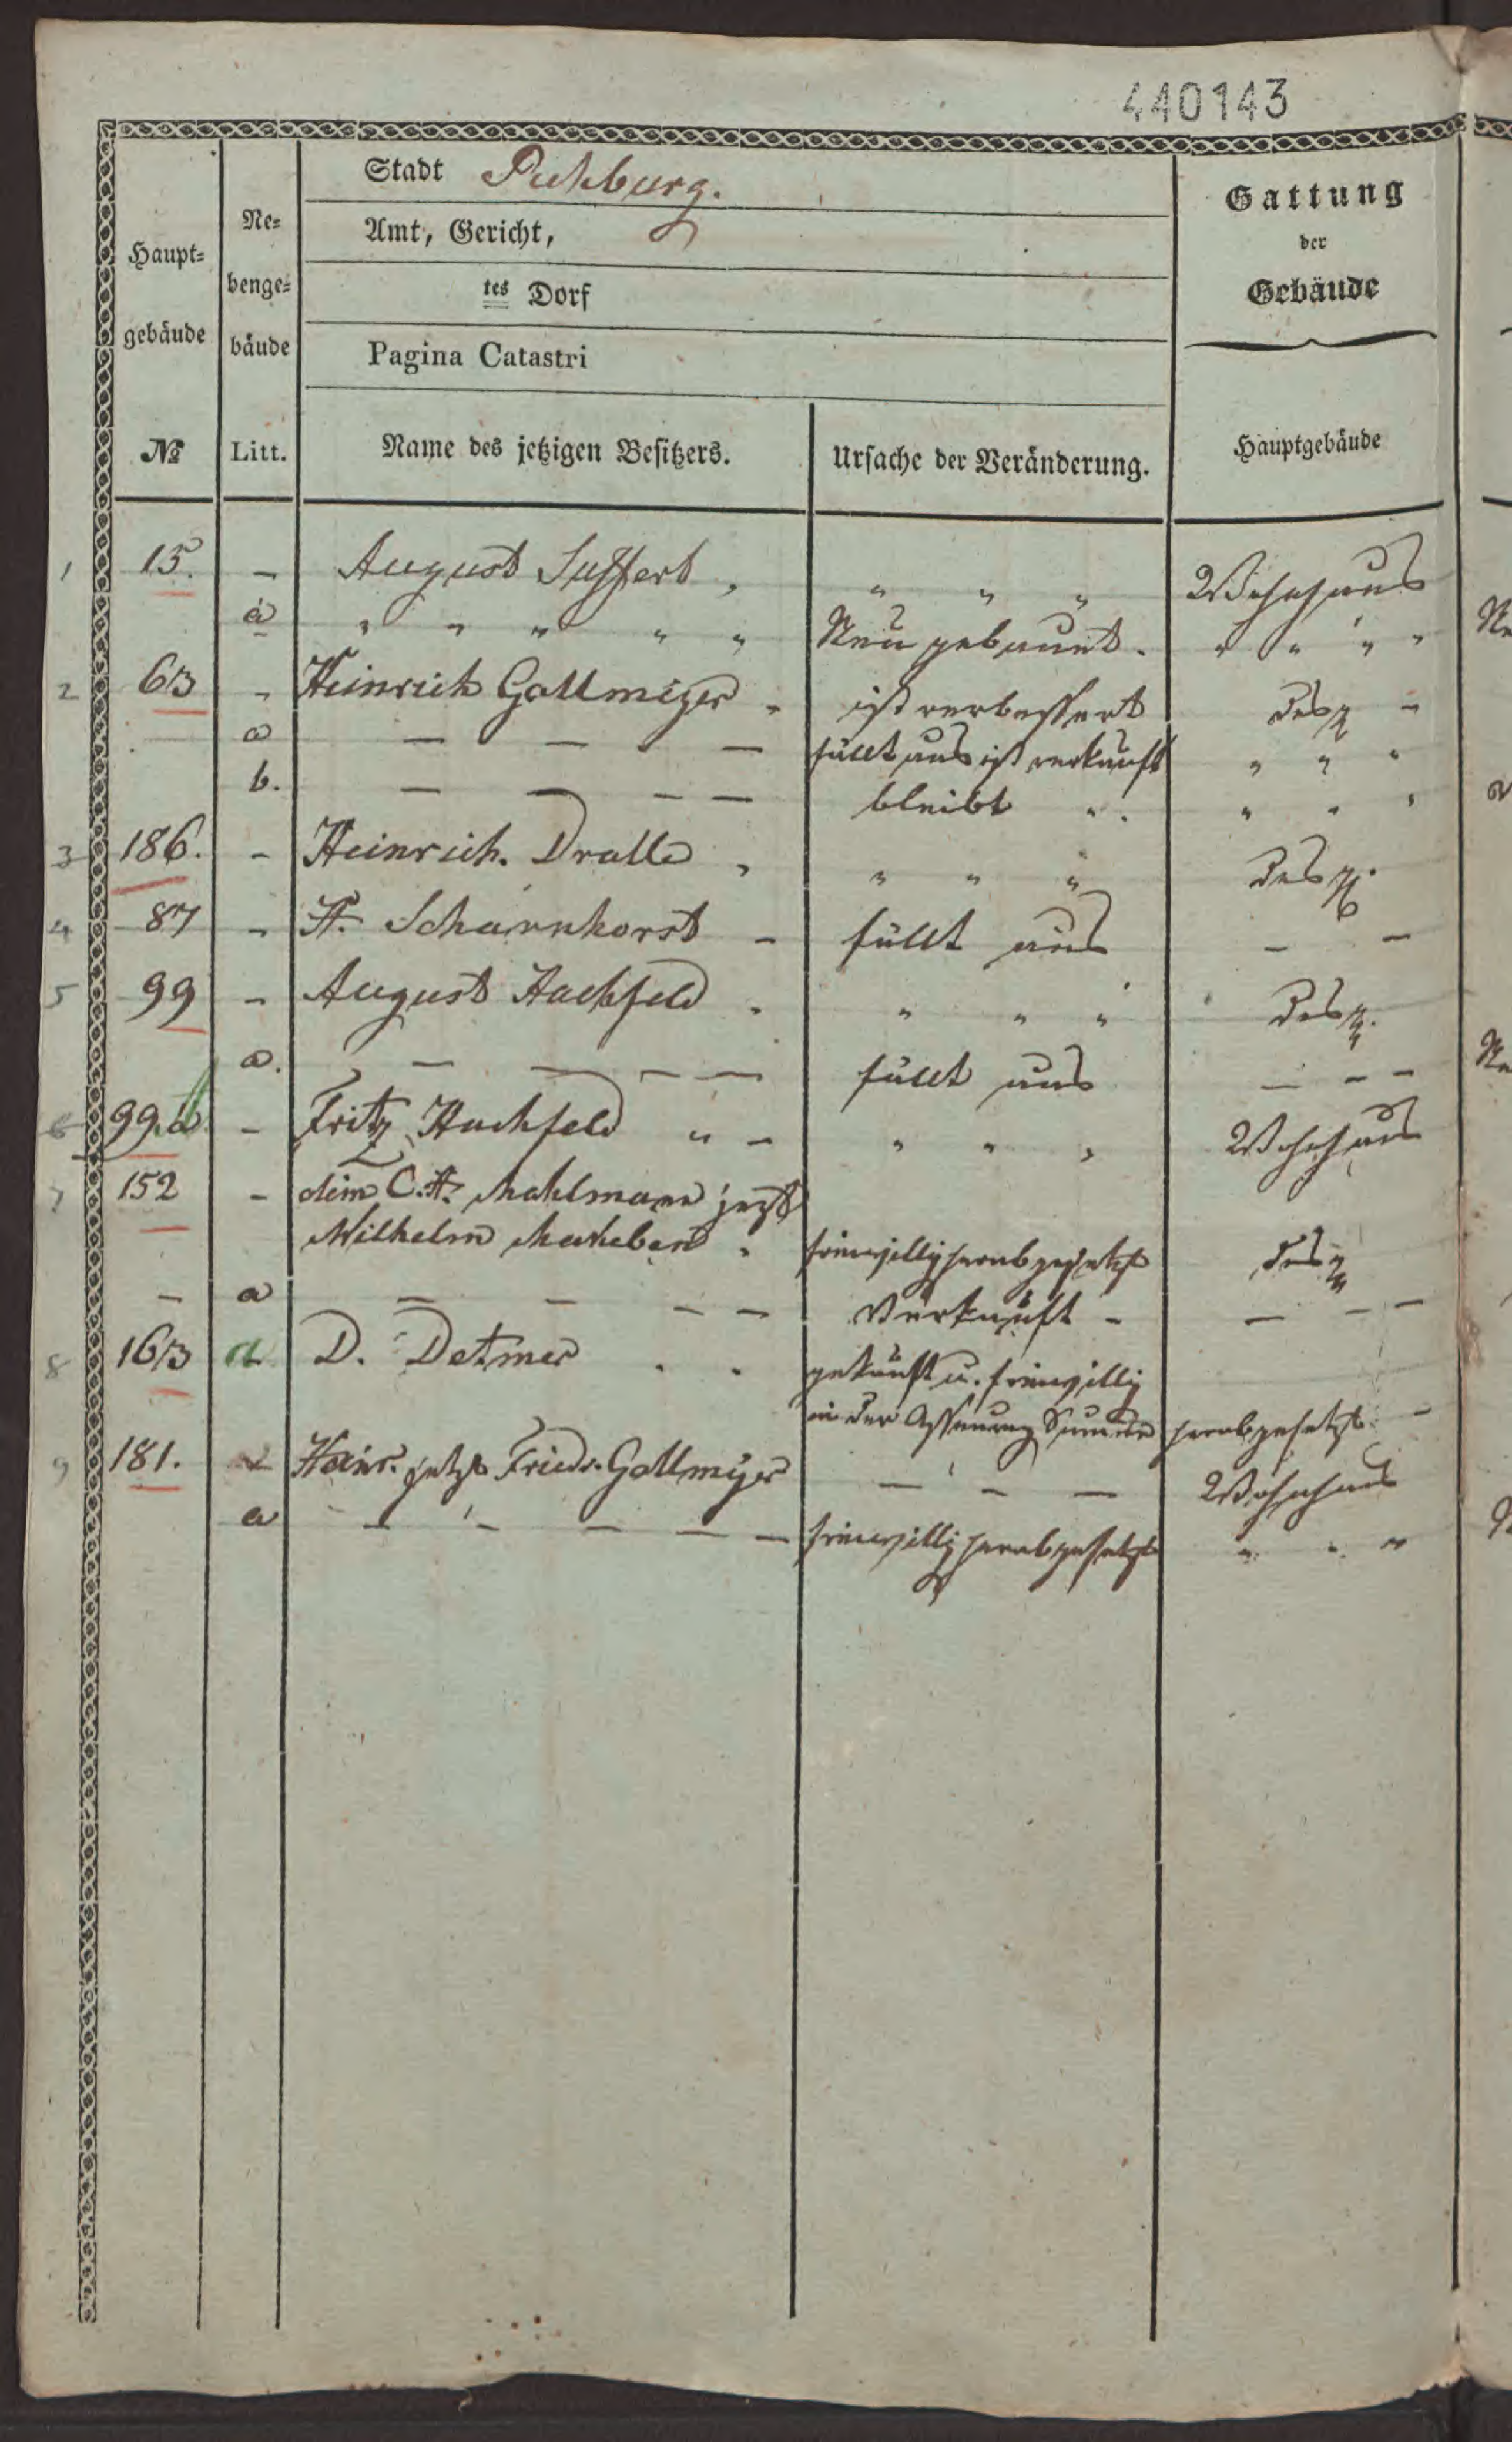 440143
Stadt Rehburg.
Amt, Gericht,
tes Dorf
Pagina Catastri
Haupt-
gebäude
№
Ne-
benge-
bäude
Litt.
Name des jetzigen Besitzers.
Ursache der Veränderung.
Gattung
der
Gebäude
Hauptgebäude
1 15. – August Suffert, " " " Wohnhaus
a " " " " " Neu gebauet. " " " "
2 63 - Heinrich Gallmeyer - ist verbessert desg -
a — — — fällt aus ist verkauft " " "
b. — — — — bleibt " . " " "
3 186. - Heinrich. Dralle, " " " desg.
4 87 - H. Scharnhorst - fällt aus – –
5 99 - August Hachfeld . " " " desg.
a. — — — — fällt aus — – –
6 99 - Fritz Hachfeld " – " " " Wohnhaus
7 152 - C. H. Mahlmann jetzt
Wilhelm freiwillig herabgesetzt desg
– a – – – – Verkauft – — – –
8 163 a D. Detmer . . gekauft u. freiwillig
in der Summe herabgesetzt –
9 181. Heinr. jetzt Friedr. Gallmeyer — – — Wohnhaus
a – – – – – freiwillig herabgesetzt " " "